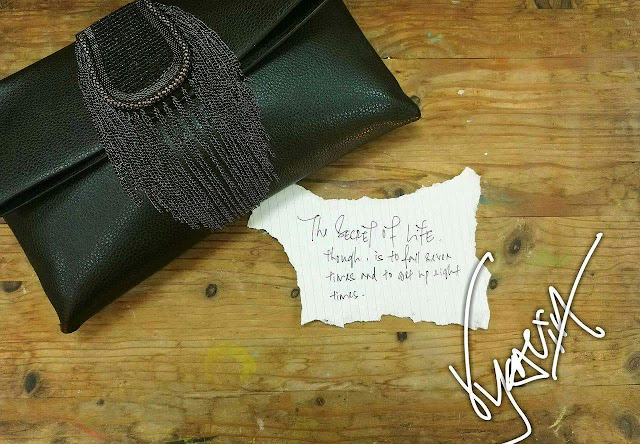 The Secret of Life.
though, is to fall seven
times and to get up eight
times.